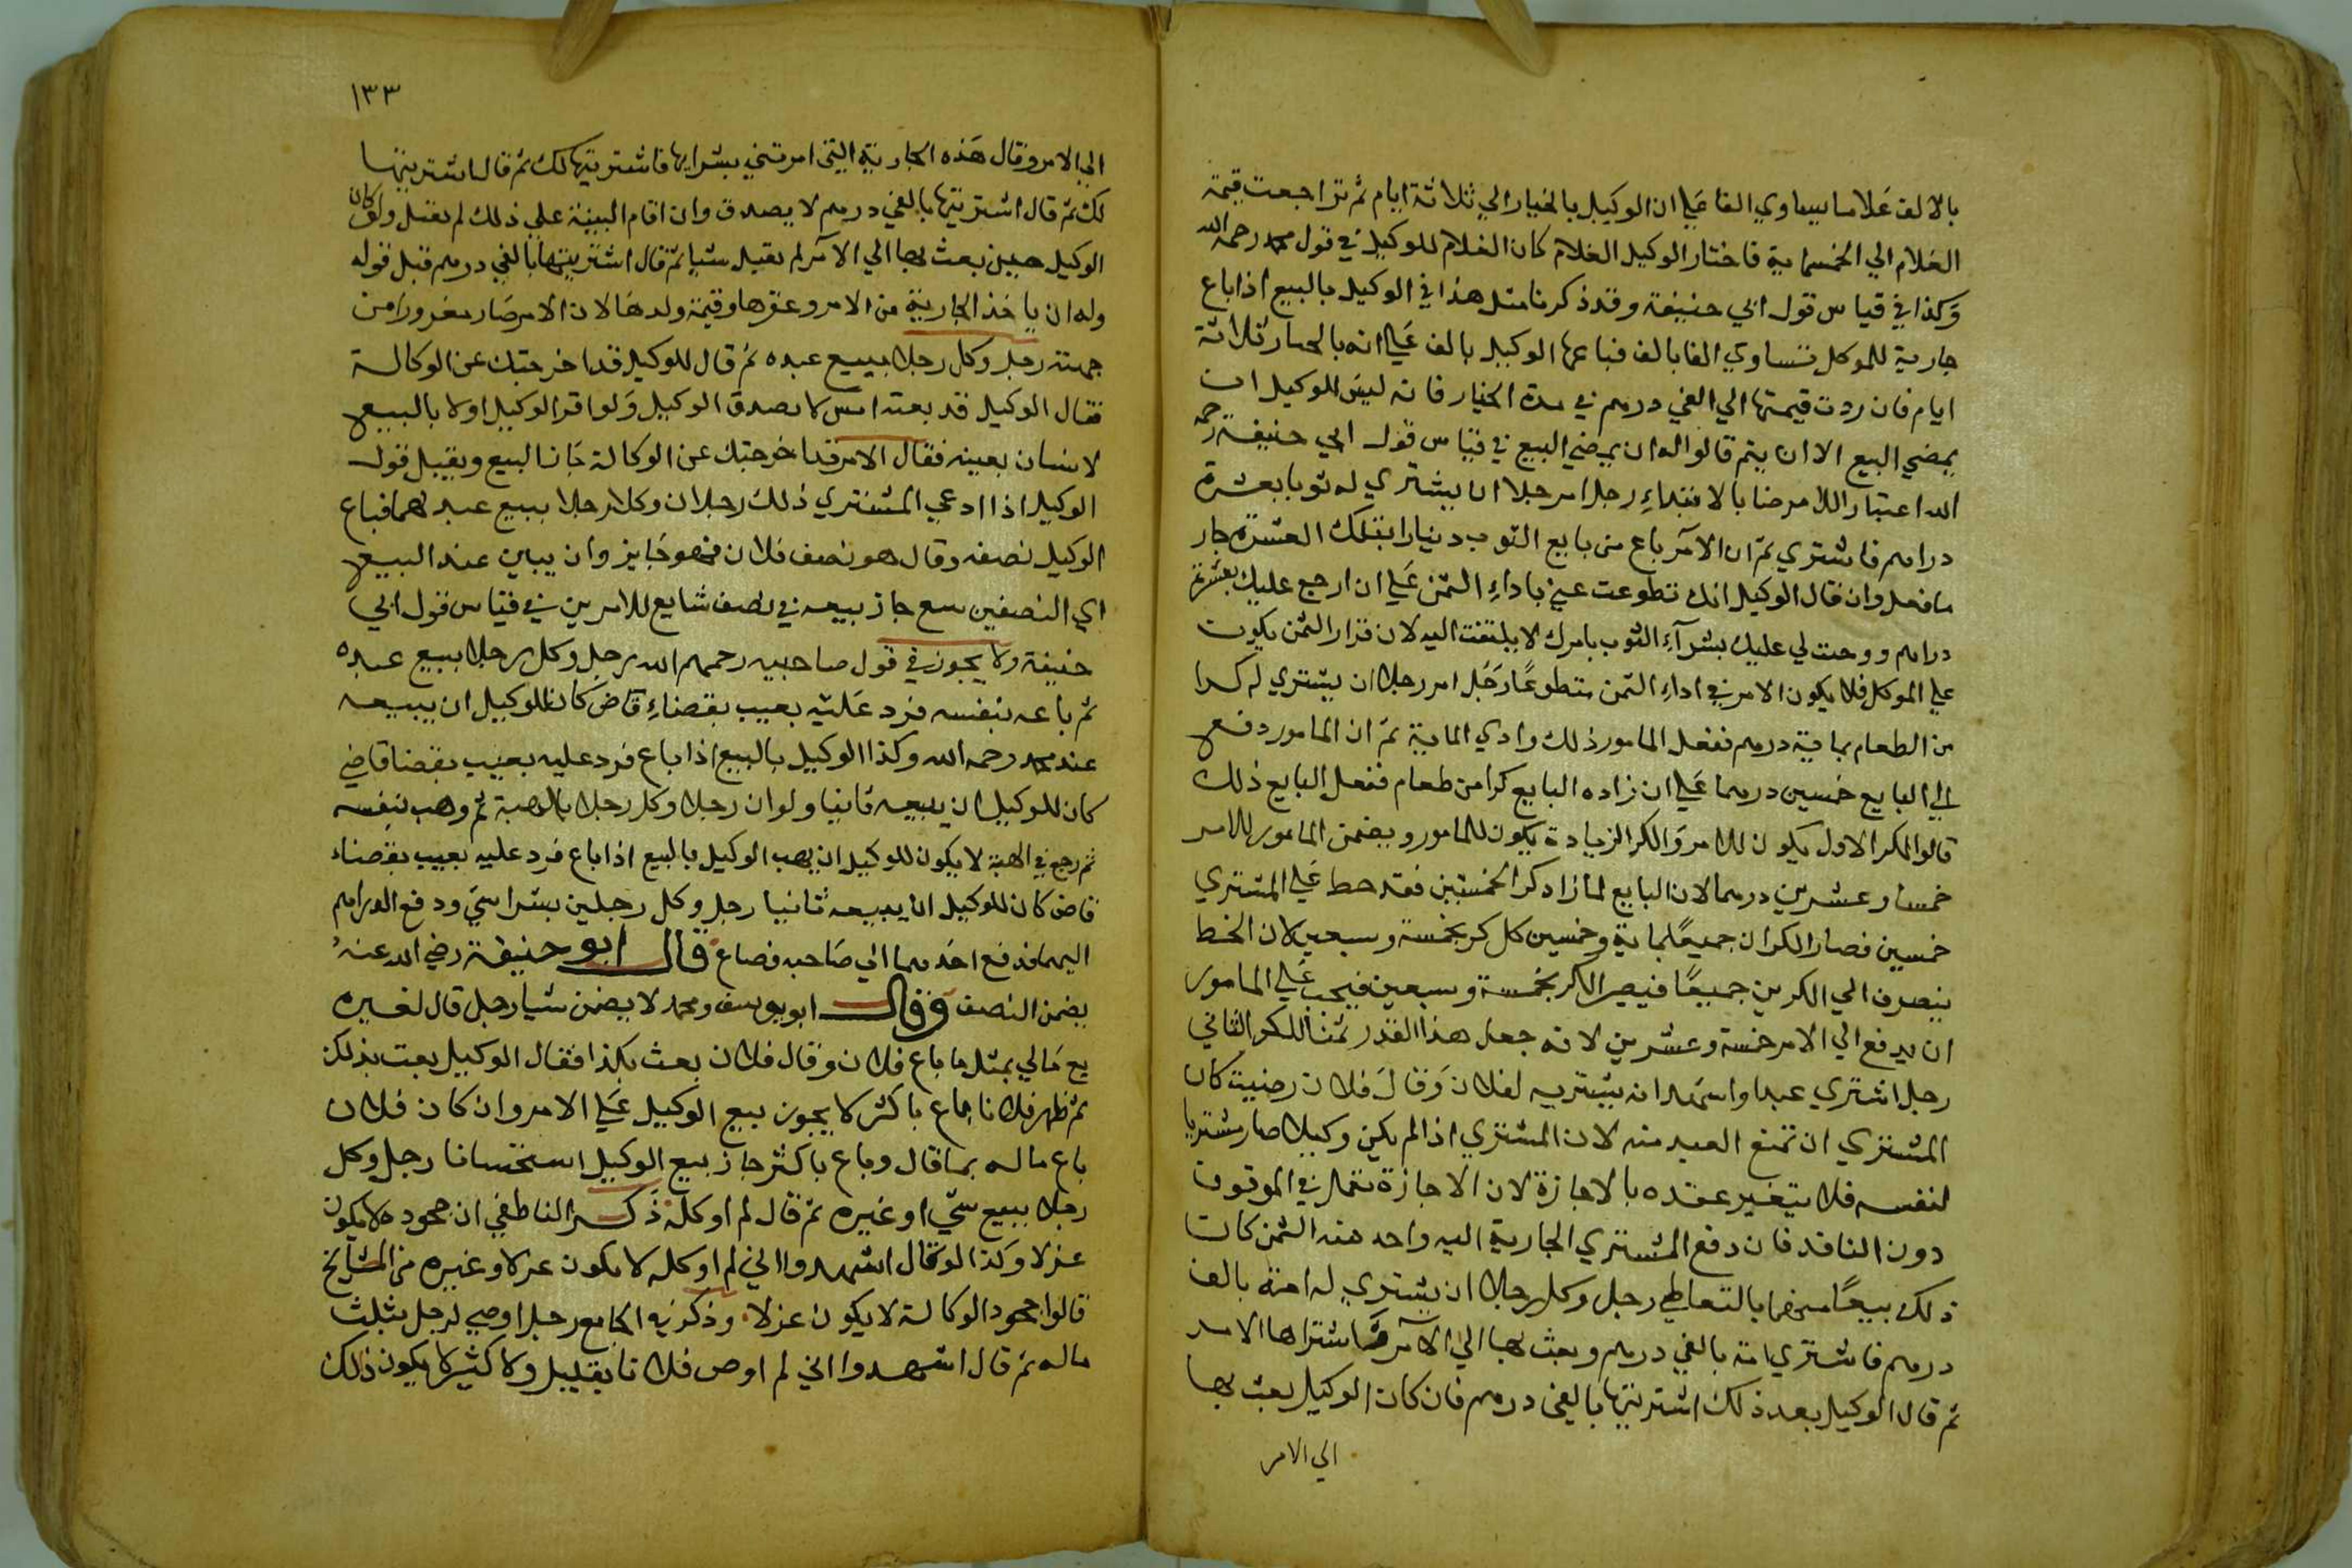 بالالف غلاما يساوي الفا علي ان الوكيل بالخيار الي ثلاثة ايام ثم تراجعت قيمة
الغلام الي الخمسماية فاختار الوكيل الغلام كان الغلام للوكيل في قول محمد رحمه الله
وكذا في قياس قول ابي حنيفة وقد ذكرنا مثل هذا في الوكيل بالبيع اذا باع
جارية للموكل تساوي الفا بالف فباعها الوكيل بالف علي انه بالخيار ثلاثة
ايام فان ردت قيمتها الي الفي درهم في مدة الخيار فانه ليس للوكيل ان
يمضي البيع الا ان يتم قالوا له ان يمضي البيع في قياس قول ابي حنيفة رحمه
الله اعتبار اللامر ضا بالابتداء رجل امر رجلا ان يشتري له ثوبا بعشرة
دراهم فاشتري ثم ان الآمر باع من بايع الثوب دينارا بتلك العشرة جاز
ما فعل وان قال الوكيل انك تطوعت عني باداء الثمن علي ان ارجع عليك بعشرة
دراهم ووجبت لي عليك بشرآء الثوب بامرك لا يلتفت اليه لان قرار الثمن يكون
علي الموكل فلا يكون الامر في اداء الثمن متطوعًا رجل امر رجلا ان يشتري له كرا
من الطعام بماية درهم ففعل المامور ذلك وادي الماية ثم ان المامور دفع
الي البايع خمسين درهما علي ان زاده البايع كرا من طعام ففعل البايع ذلك
قالوا الكر الاول يكون للامر والكر الزيادة يكون للمامور ويضمن المامور للامر
خمسا وعشرين درهما لان البايع لما زاد كرا لخمسين فقد حط علي المشتري
خمسين فصار الكران جميعًا بماية وخمسين كل كر بخمسة وسبعين لان الحط
ينصرف الي الكرين جميعًا فيصير الكر بخمسة وسبعين فيجب علي المامور
ان يدفع الي الامر خمسة وعشرين لانه جعل هذا القدر ثمنا للكر الثاني
رجل اشتري عبدا واشهد انه يشتريه لفلان وقال فلان رضيت كان
المشتري ان تمنع العبد منه لان المشتري اذا لم يكن وكيلا صار مشتريا
لنفسه فلا يتغير عقده بالاجازة لان الاجازة تعمل في الموقوف
دون النافذ فان دفع المشتري الجارية اليه واخذ منه الثمن كان
ذلك بيعًا منهما بالتعاطي رجل وكل رجلا ان يشتري له امة بالف
درهم فاشتري امة بالفي درهم وبعث بها الي الآمر فاشتراها الامر
ثم قال الوكيل بعد ذلك اشتريتها بالفي درهم فان كان الوكيل بعث بها
الي الامر
١٣٣
الي الامر وقال هذه الجارية التي امرتني بشرايها فاشتريتها لك ثم قال اشتريتها
لك ثم قال اشتريتها بالفي درهم لا يصدق وان اقام البينة علي ذلك لم تقبل ولو كان
الوكيل حين بعث بها الي الآمر لم يقل شيا ثم قال اشتريتها بالفي درهم قبل قوله
وله ان ياخذ الجارية من الامر وعقرها وقيمة ولدها لان الامر صار مغرورا من
جهته رجل وكل رجلا ببيع عبده ثم قال للوكيل قد اخرجتك عن الوكالة
فقال الوكيل قد بعته امس لا يصدق الوكيل ولو اقر الوكيل اولا بالبيع
لانسان بعينه فقال الامر قد اخرجتك عن الوكالة جاز البيع ويقبل قول
الوكيل اذا ادعي المشتري ذلك رجلان وكلا رجلا ببيع عبد لهما فباع
الوكيل نصفه وقال هو نصف فلان فهو جايز وان يبين عند البيع
اي النصفين بيع جاز بيعه في نصف شايع للامرين في قياس قول ابي
حنيفة ولا يجوز في قول صاحبيه رحمهم الله رجل وكل رجلا ببيع عبده
ثم باعه بنفسه فرد عليه بعيب بقضاء قاض كان للوكيل ان يبيعه
عند محمد رحمه الله وكذا الوكيل بالبيع اذا باع فرد عليه بعيب بقضا قاضي
كان للوكيل ان يبيعه ثانيا ولو ان رجلا وكل رجلا بالهبة ثم وهب بنفسه
ثم رجع في الهبة لا يكون للوكيل ان يهب الوكيل بالبيع اذا باع فرد عليه بعيب بقضاء
قاض كان للوكيل ان يبيعه ثانيا رجل وكل رجلين بشرا شي ودفع الدراهم
اليهما فدفع احدهما الي صاحبه فضاع قال ابو حنيفة رضي الله عنه
يضمن النصف وقال ابو يوسف ومحمد لا يضمن شيا رجل قال لغيره
بع مالي بمثل ما باع فلان وقال فلان بعت بكذا فقال الوكيل بعت بذلك
ثم ظهر فلانا باع باكثر لا يجوز بيع الوكيل علي الامر وان كان فلان
باع ماله بما قال وباع باكثر جاز بيع الوكيل استحسانا رجل وكل
رجلا ببيع شي او غيره ثم قال لم اوكله ذكر الناطفي ان جحوده لا يكون
عزلا وكذا لو قال اشهدوا اني لم اوكله لا يكون عزلا وغيره من المشايخ
قالوا جحود الوكالة لا يكون عزلا وذكر في الجامع رجل اوصي لرجل بثلث
ماله ثم قال اشهدوا اني لم اوص فلانا بقليل ولا كثير لا يكون ذلك